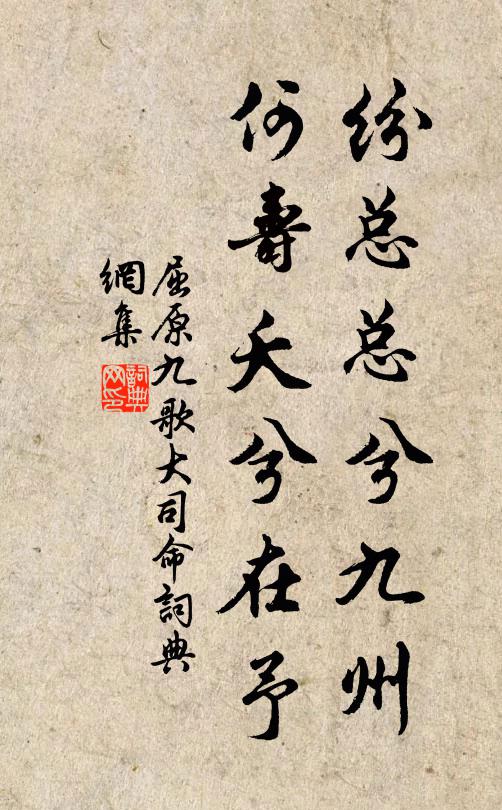 纷总总兮九州
何壽夭兮在予
屈原九歌大司命詞典
網集
詞典
网印